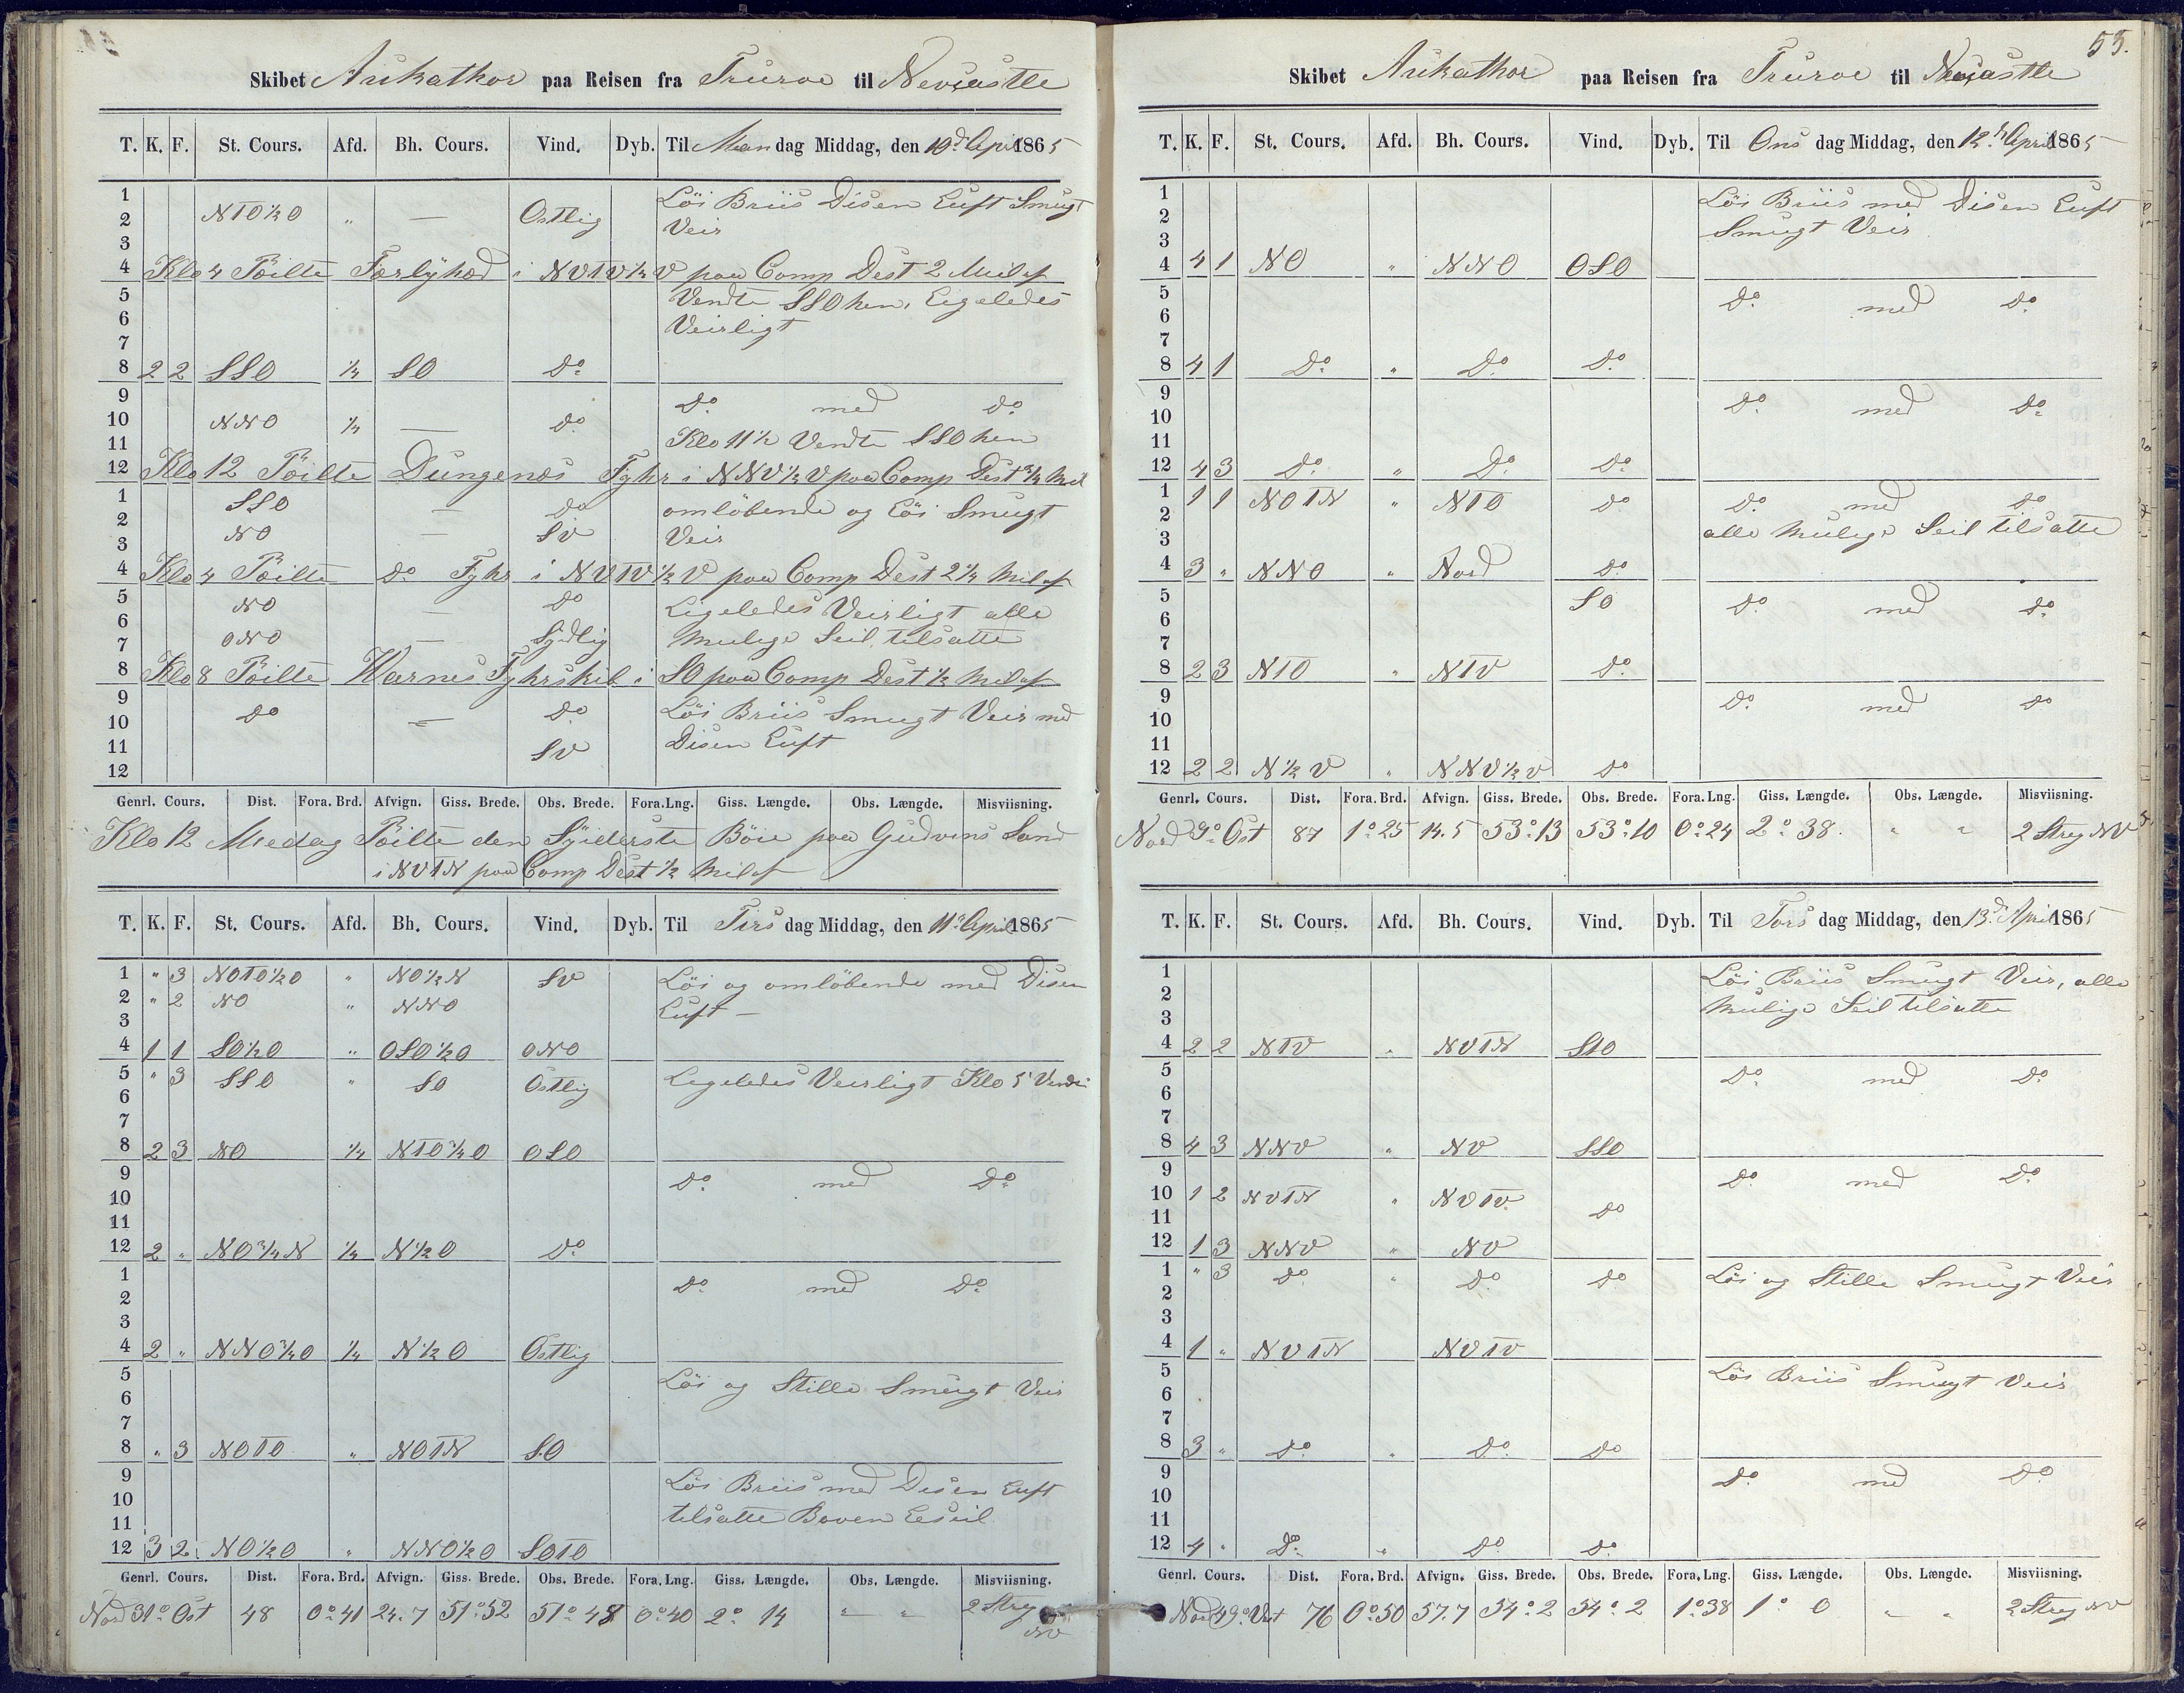 Skibet Aukathor paa Reisen fra Truroe til Newcastle
T. K. F. St. Cours. Afd. Bh. Cours. Vind. Dyb. Til Man dag Middag, den 10d April 1865
1 Löi Briis Disen Luft Smugt
2 NTO½O " — Ostlig Veir
3
4 Klo 4 Peilte Færlyhed i NVTV½V paa Comp Dest 2 Mil af
5 Vendte SSO hen, Ligeledes
6 Veirligt
7
8 2 2 SSO ¼ SO Do
9 Do med Do
10 NNO ¼ — Do
11 Klo 11½ Vendte SSO hen
12 Klo 12 Peilte Dungenæs Fyhr i NNV½V paa Comp Dest ¾ Mil
1 SSO — Do omlöbende og Löi Smugt
2 NO — SV Veir
3
4 Klo 4 Peilte Do Fyhr i NVTV½V paa Comp Dest 2¼ Mil af
5 NO — Do Ligeledes Veirligt alle
6 ONO — Sydlig Mulige Seil tilsatte
7
8 Klo 8 Peilte Warnes Fyhrskib i SO paa Comp Dest ½ Mil af
9 Do — Do Löi Briis Smugt Veir med
10 SV Disen Luft
11
12
Genrl. Cours. Dist. Fora. Brd. Afvign. Giss. Brede. Obs. Brede. Fora. Lng. Giss. Længde. Obs. Længde. Misviisning.
Klo 12 Medag Peilte den Syderste Böie paa Gudvins Sand
i NVTN paa Comp Dest ½ Mil af
T. K. F. St. Cours. Afd. Bh. Cours. Vind. Dyb. Til Tirs dag Middag, den 11d April 1865
1 " 3 NOTO½O " NO½N SV Löi og omlöbende med Disen
2 " 2 NO " NNO Luft —
3
4 1 1 SO½O " OSO½O ONO
5 " 3 SSO " SO Ostlig Ligeledes Veirligt Klo 5 Vendte
6
7
8 2 3 NO ¼ NTO¼O OSO
9 Do med Do
10
11
12 2 " NO¾N ¼ N½O Do
1 Do med Do
2
3
4 2 " NNO¾O ¼ N½O Ostlig
5 Löi og Stille Smugt Veir
6
7
8 " 3 NOTO " NOTN SO
9 Löi Briis med Disen Luft
10 tilsatte Boven Leseil
11
12 3 2 NO½O " NNO½O SOTO
Genrl. Cours. Dist. Fora. Brd. Afvign. Giss. Brede. Obs. Brede. Fora. Lng. Giss. Længde. Obs. Længde. Misviisning.
Nord 31° Ost 48 0°41 24.7 51°52 51°48 0°40 2° 14 " " 2 Streg NV
55.
Skibet Aukathor paa Reisen fra Truroe til Newcastle
T. K. F. St. Cours. Afd. Bh. Cours. Vind. Dyb. Til Ons dag Middag, den 12t April 1865
1 Löi Briis med Disen Luft
2 Smugt Veir
3
4 4 1 NO " NNO OSO
5 Do med Do
6
7
8 4 1 Do " Do Do
9 Do med Do
10
11
12 4 3 Do " Do Do
1 1 1 NOTN " NTO Do Do med Do
2 alle Mulige Seil tilsatte
3
4 3 " NNO " Nord Do
5 SO Do med Do
6
7
8 2 3 NTO " NTV Do
9 Do med Do
10
11
12 2 2 N½V " NNV½V Do
Genrl. Cours. Dist. Fora. Brd. Afvign. Giss. Brede. Obs. Brede. Fora. Lng. Giss. Længde. Obs. Længde. Misviisning.
Nord 9° Ost 87 1°25 14.5 53°13 53°10 0°24 2° 38 " " 2 Streg NV
T. K. F. St. Cours. Afd. Bh. Cours. Vind. Dyb. Til Tors dag Middag, den 13d April 1865
1 Löi Briis Smugt Veir, alle
2 Mulige Seil tilsatte
3
4 2 2 NTV " NVTN STO
5 Do med Do
6
7
8 4 3 NNV " NV SSO
9 Do med Do
10 1 2 NVTN " NVTV Do
11
12 1 3 NNV " NV
1 " 3 Do " Do Do Löi og Stille Smugt Veir
2
3
4 1 " NVTN NVTV
5 Löi Briis Smugt Veir
6
7
8 3 " Do " Do Do
9 Do med Do
10
11
12 4 " Do " Do Do
Genrl. Cours. Dist. Fora. Brd. Afvign. Giss. Brede. Obs. Brede. Fora. Lng. Giss. Længde. Obs. Længde. Misviisning.
Nord 49° Vest 76 0°50 57.7 54°2 54°2 1°38 1° 0 " " 2 Streg NV